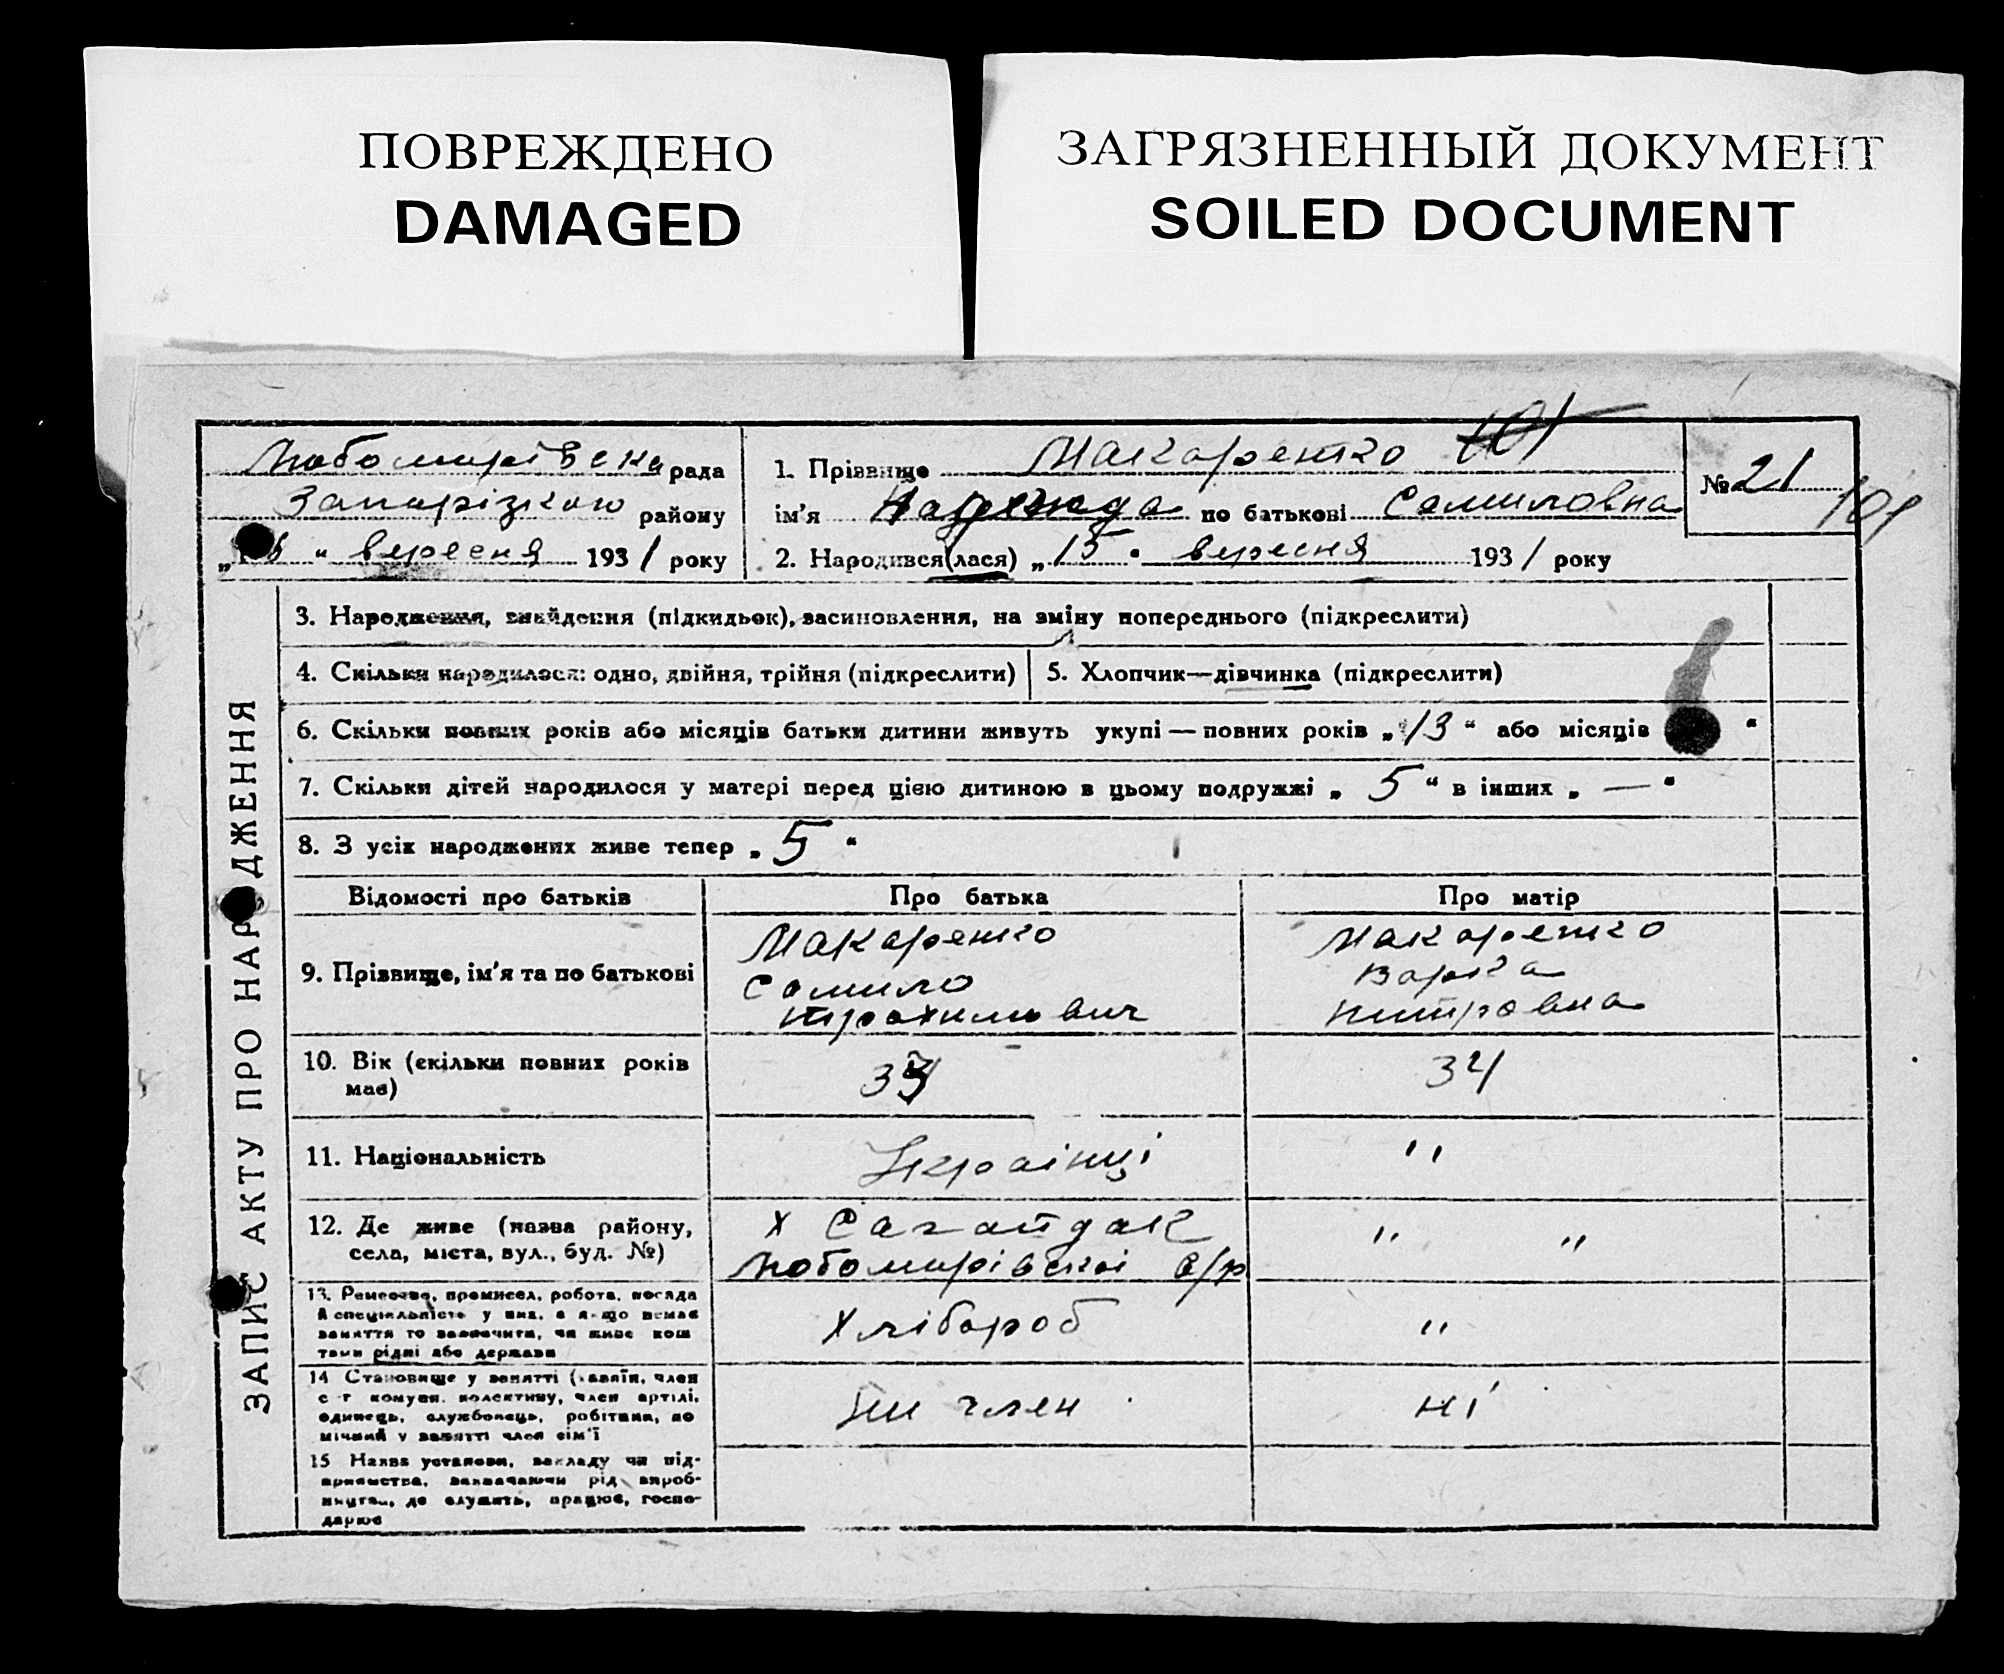 ПОВРЕЖДЕНО
DAMAGED
ЗАГРЯЗНЕННЫЙ ДОКУМЕНТ
SOILED DOCUMENT
Любомирівска рада
Запорізкого району
" вересня 1931 року
1. Прізвище Макаренко 101
ім'я Надежда по батькові Самиловна
2. Народився(лася) „15" вересня 1931 року
№ 21
101
ЗАПИС АКТУ ПРО НАРОДЖЕННЯ
3. Народження, знайдення (підкидьок), засиновлення, на зміну попереднього (підкреслити)
4. Скільки народилася: одно, двійня, трійня (підкреслити)
5. Хлопчик—дівчинка (підкреслити)
6. Скільки повних років або місяців батьки дитини живуть укупі — повних років „13" або місяців "
7. Скільки дітей народилося у матері перед цією дитиною в цьому подружжі „5" в інших „—"
8. З усіх народжених живе тепер „5"
Відомості про батьків
Про батька
Про матір
9. Прізвище, ім'я та по батькові
Макаренко
Самило
Трохимович
Макаренко
Варка
Питровна
10. Вік (скільки повних років
має)
34
11. Національність
Українці
" "
12. Де живе (назва району,
села, міста, вул., буд. №)
х Сагайдак
Любомирівскоі с/р
" "
13. Ремество, промисел, робота, посада
й спеціяльність у них, а якщо немає
заняття то зазначити, чи живе кош
тами рідні або держави
Хлібороб
"
14 Становище у занятті (хазяїн, член
с-г комуни, колективу, член артілі,
одинець, службовець, робітник, по
мічний у занятті член сім'ї
член
ні
15 Назва установи, закладу чи під-
приємства, зазначаючи рід вироб-
ництва, де служить, працює, госпо-
дарює